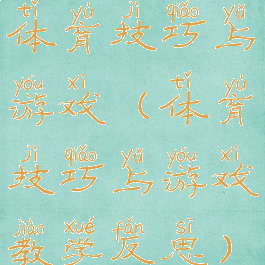 tǐ yù jì qiǎo yǔ
体育技巧与
yóu xì tǐ yù
游戏（体育
jì qiǎo yǔ yóu xì
技巧与游戏
jiào xué fǎn sī
教学反思）